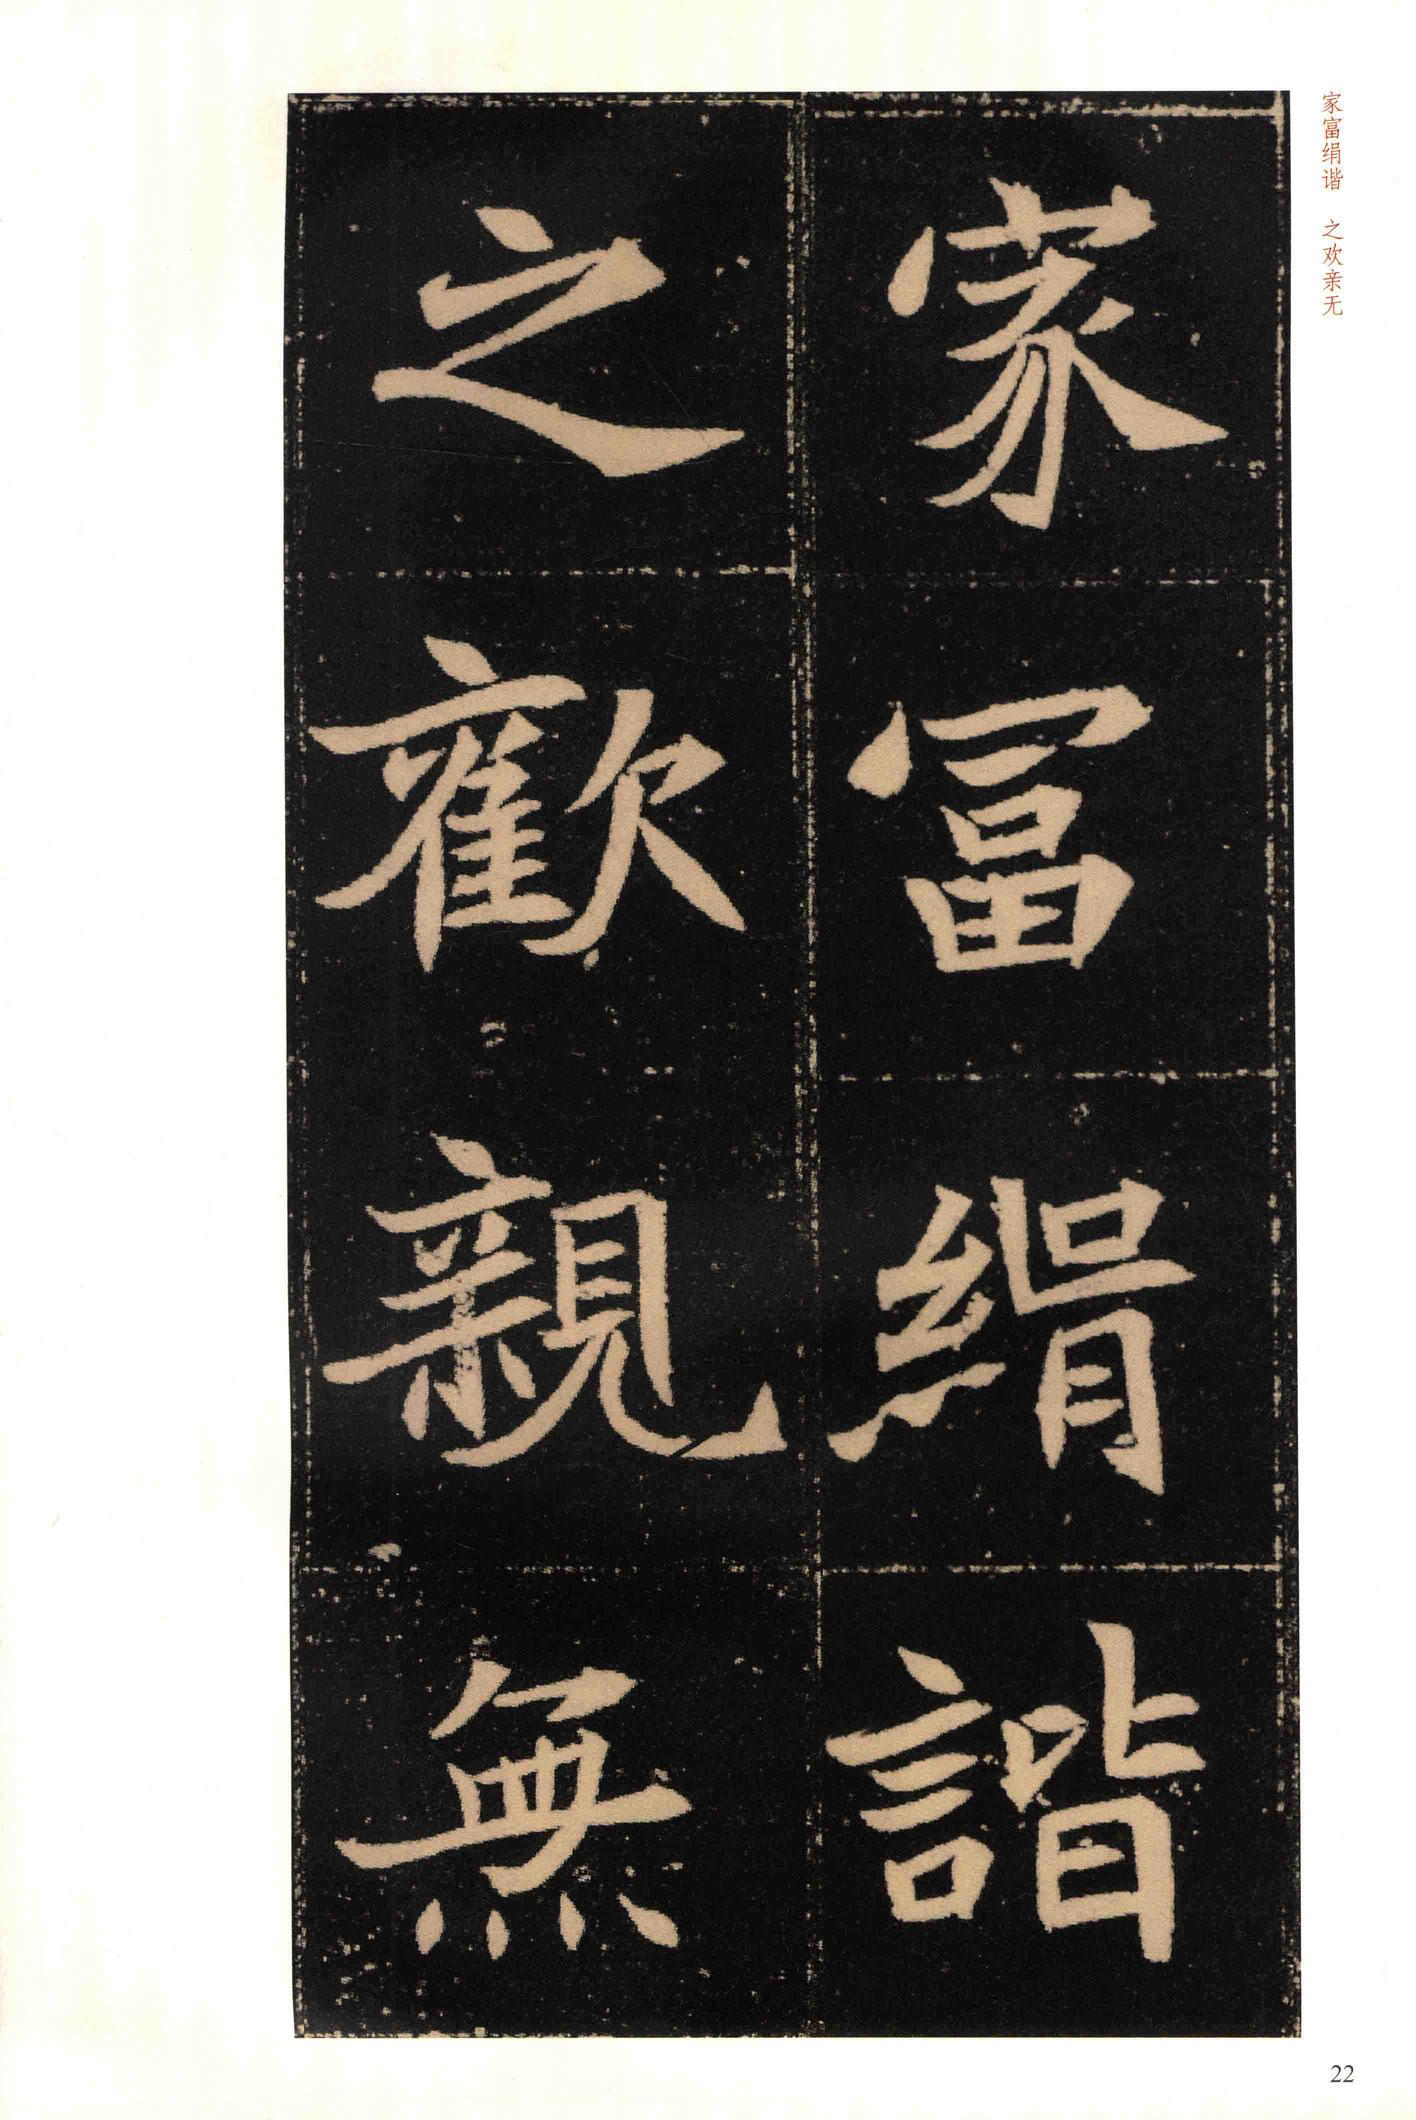 家富絹諧
之歡親無
家富绢谐 之欢亲无
22